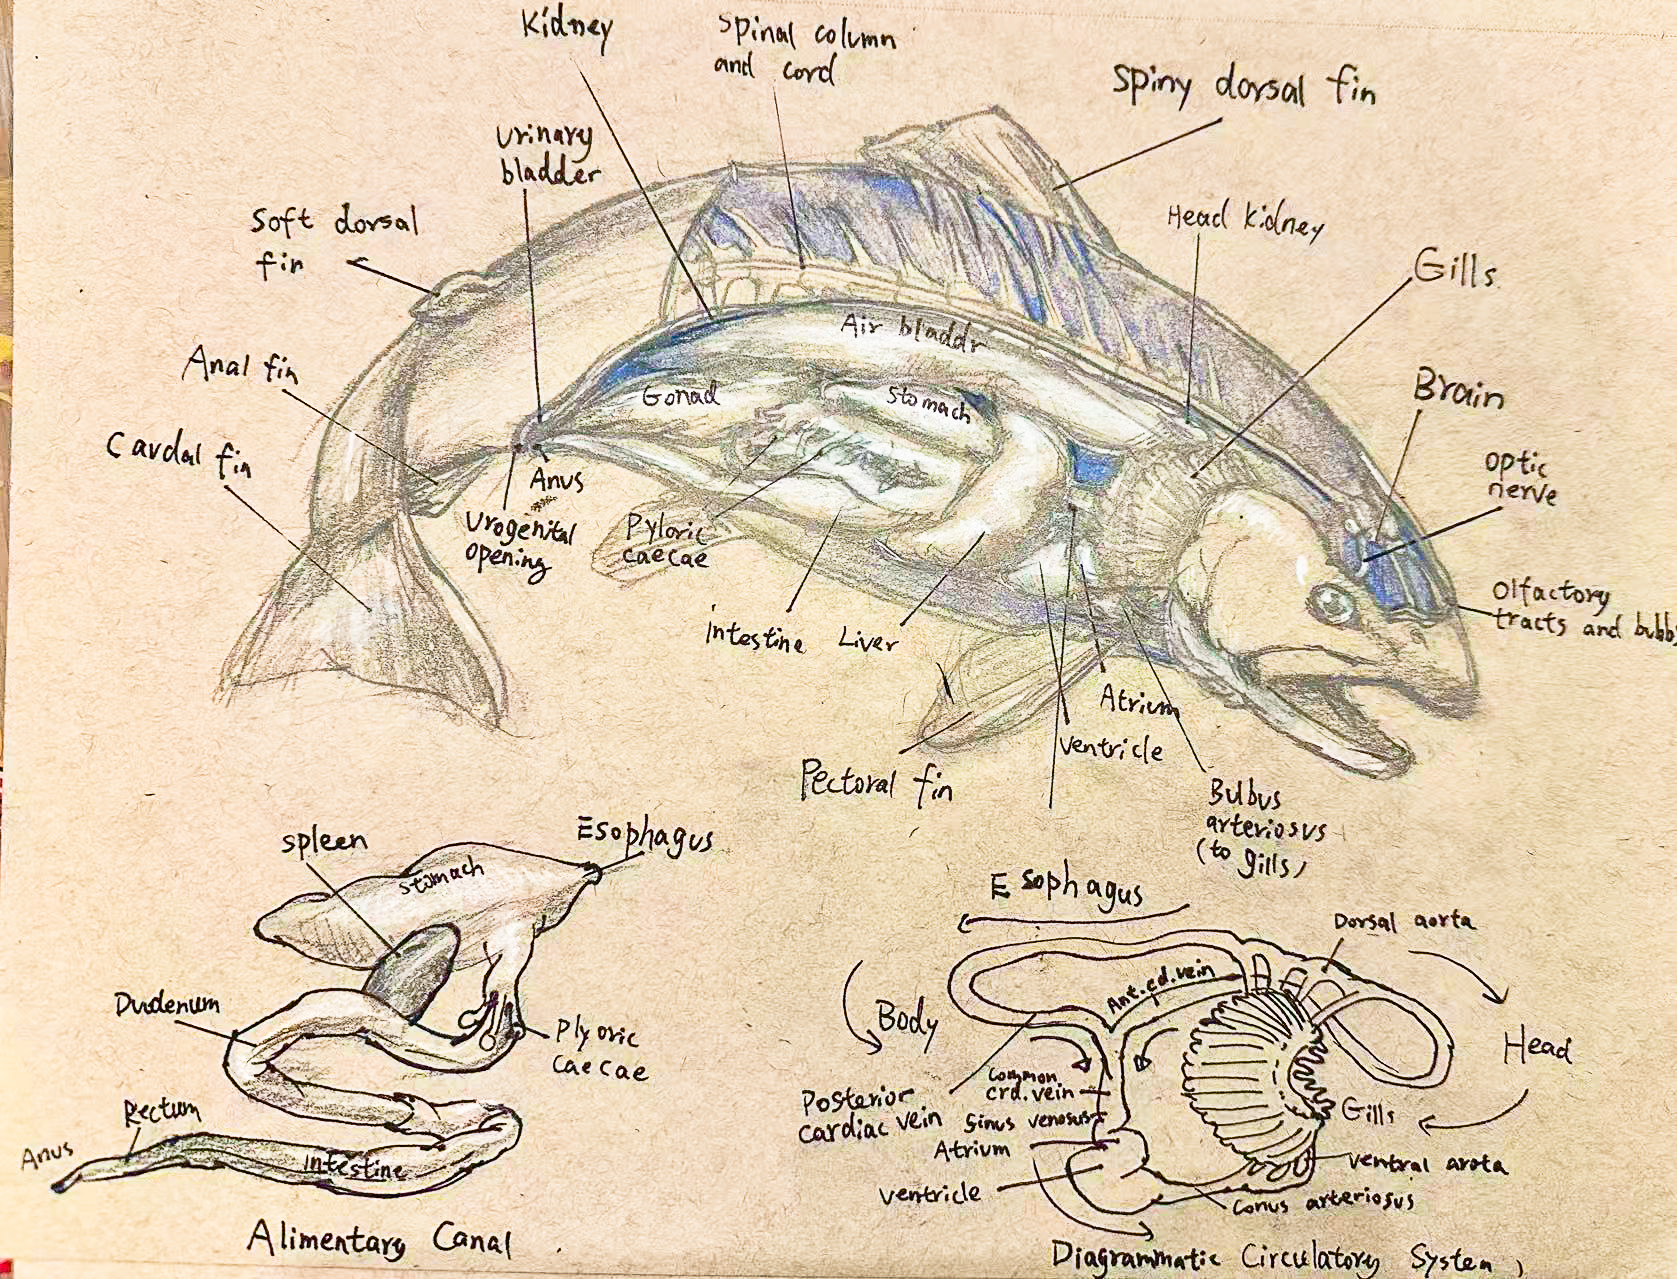 Kidney
Spinal column
and cord
Spiny dorsal fin
Urinary
bladder
Soft dorsal
fin
Head kidney
Gills
Air bladdr
Anal fin
Gonad
Stomach
Brain
Caudal fin
Optic
nerve
Anus
Urogenital
opening
Pyloric
caecae
Olfactory
tracts and bubb
intestine
Liver
Atrium
Ventricle
Pectoral fin
Bulbus
arteriosus
(to gills)
Spleen
Stomach
Esophagus
Dudenum
Plyoric
caecae
Rectum
Anus
Intestine
Alimentary Canal
Esophagus
Dorsal aorta
Ant.cd.vein
Body
Head
Common
crd.vein
Posterior
cardiac vein
Sinus venosus
Gills
Atrium
Ventral arota
Ventricle
Conus arteriosus
Diagrammatic Circulatory System